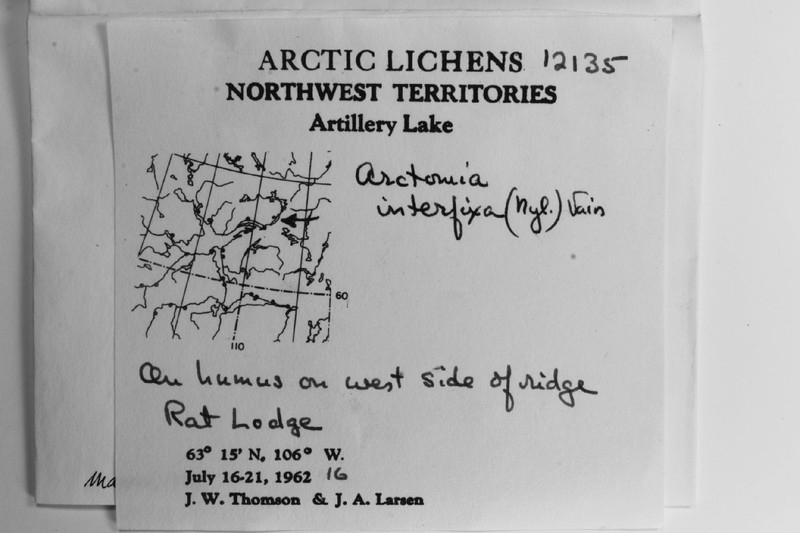 ARCTIC LICHENS 12135
NORTHWEST TERRITORIES
Artillery Lake
Arctomia
interfixa (Nyl.) Vain
60
110
On humus on west side of ridge
Rat Lodge
63° 15' N, 106° W.
July 16-21, 1962 16
J. W. Thomson & J. A. Larsen